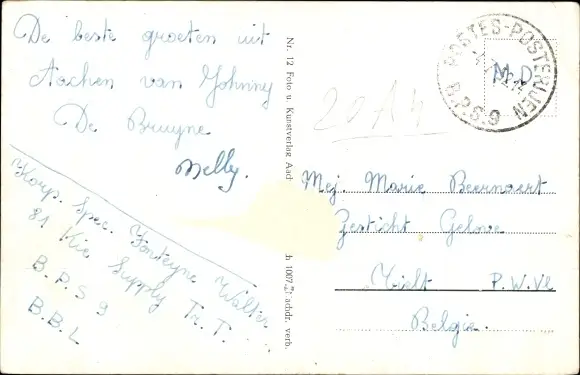 De beste groeten uit
Aachen van Johnny
De Bruyne
Nelly.
Korp. Spec. Fonteyne Walter
81 Kie Supply Tr. T.
B.P.S 9
B.B.L
Nr. 12 Foto u. Kunstverlag Aach
h 1007, achdr. verb.
POSTES-POSTERIJEN
B.P.S.9
M.D.
20A4
Mej. Marie Beernaert
Gesticht Gelove
Tielt P.W.Vl
Belgie.